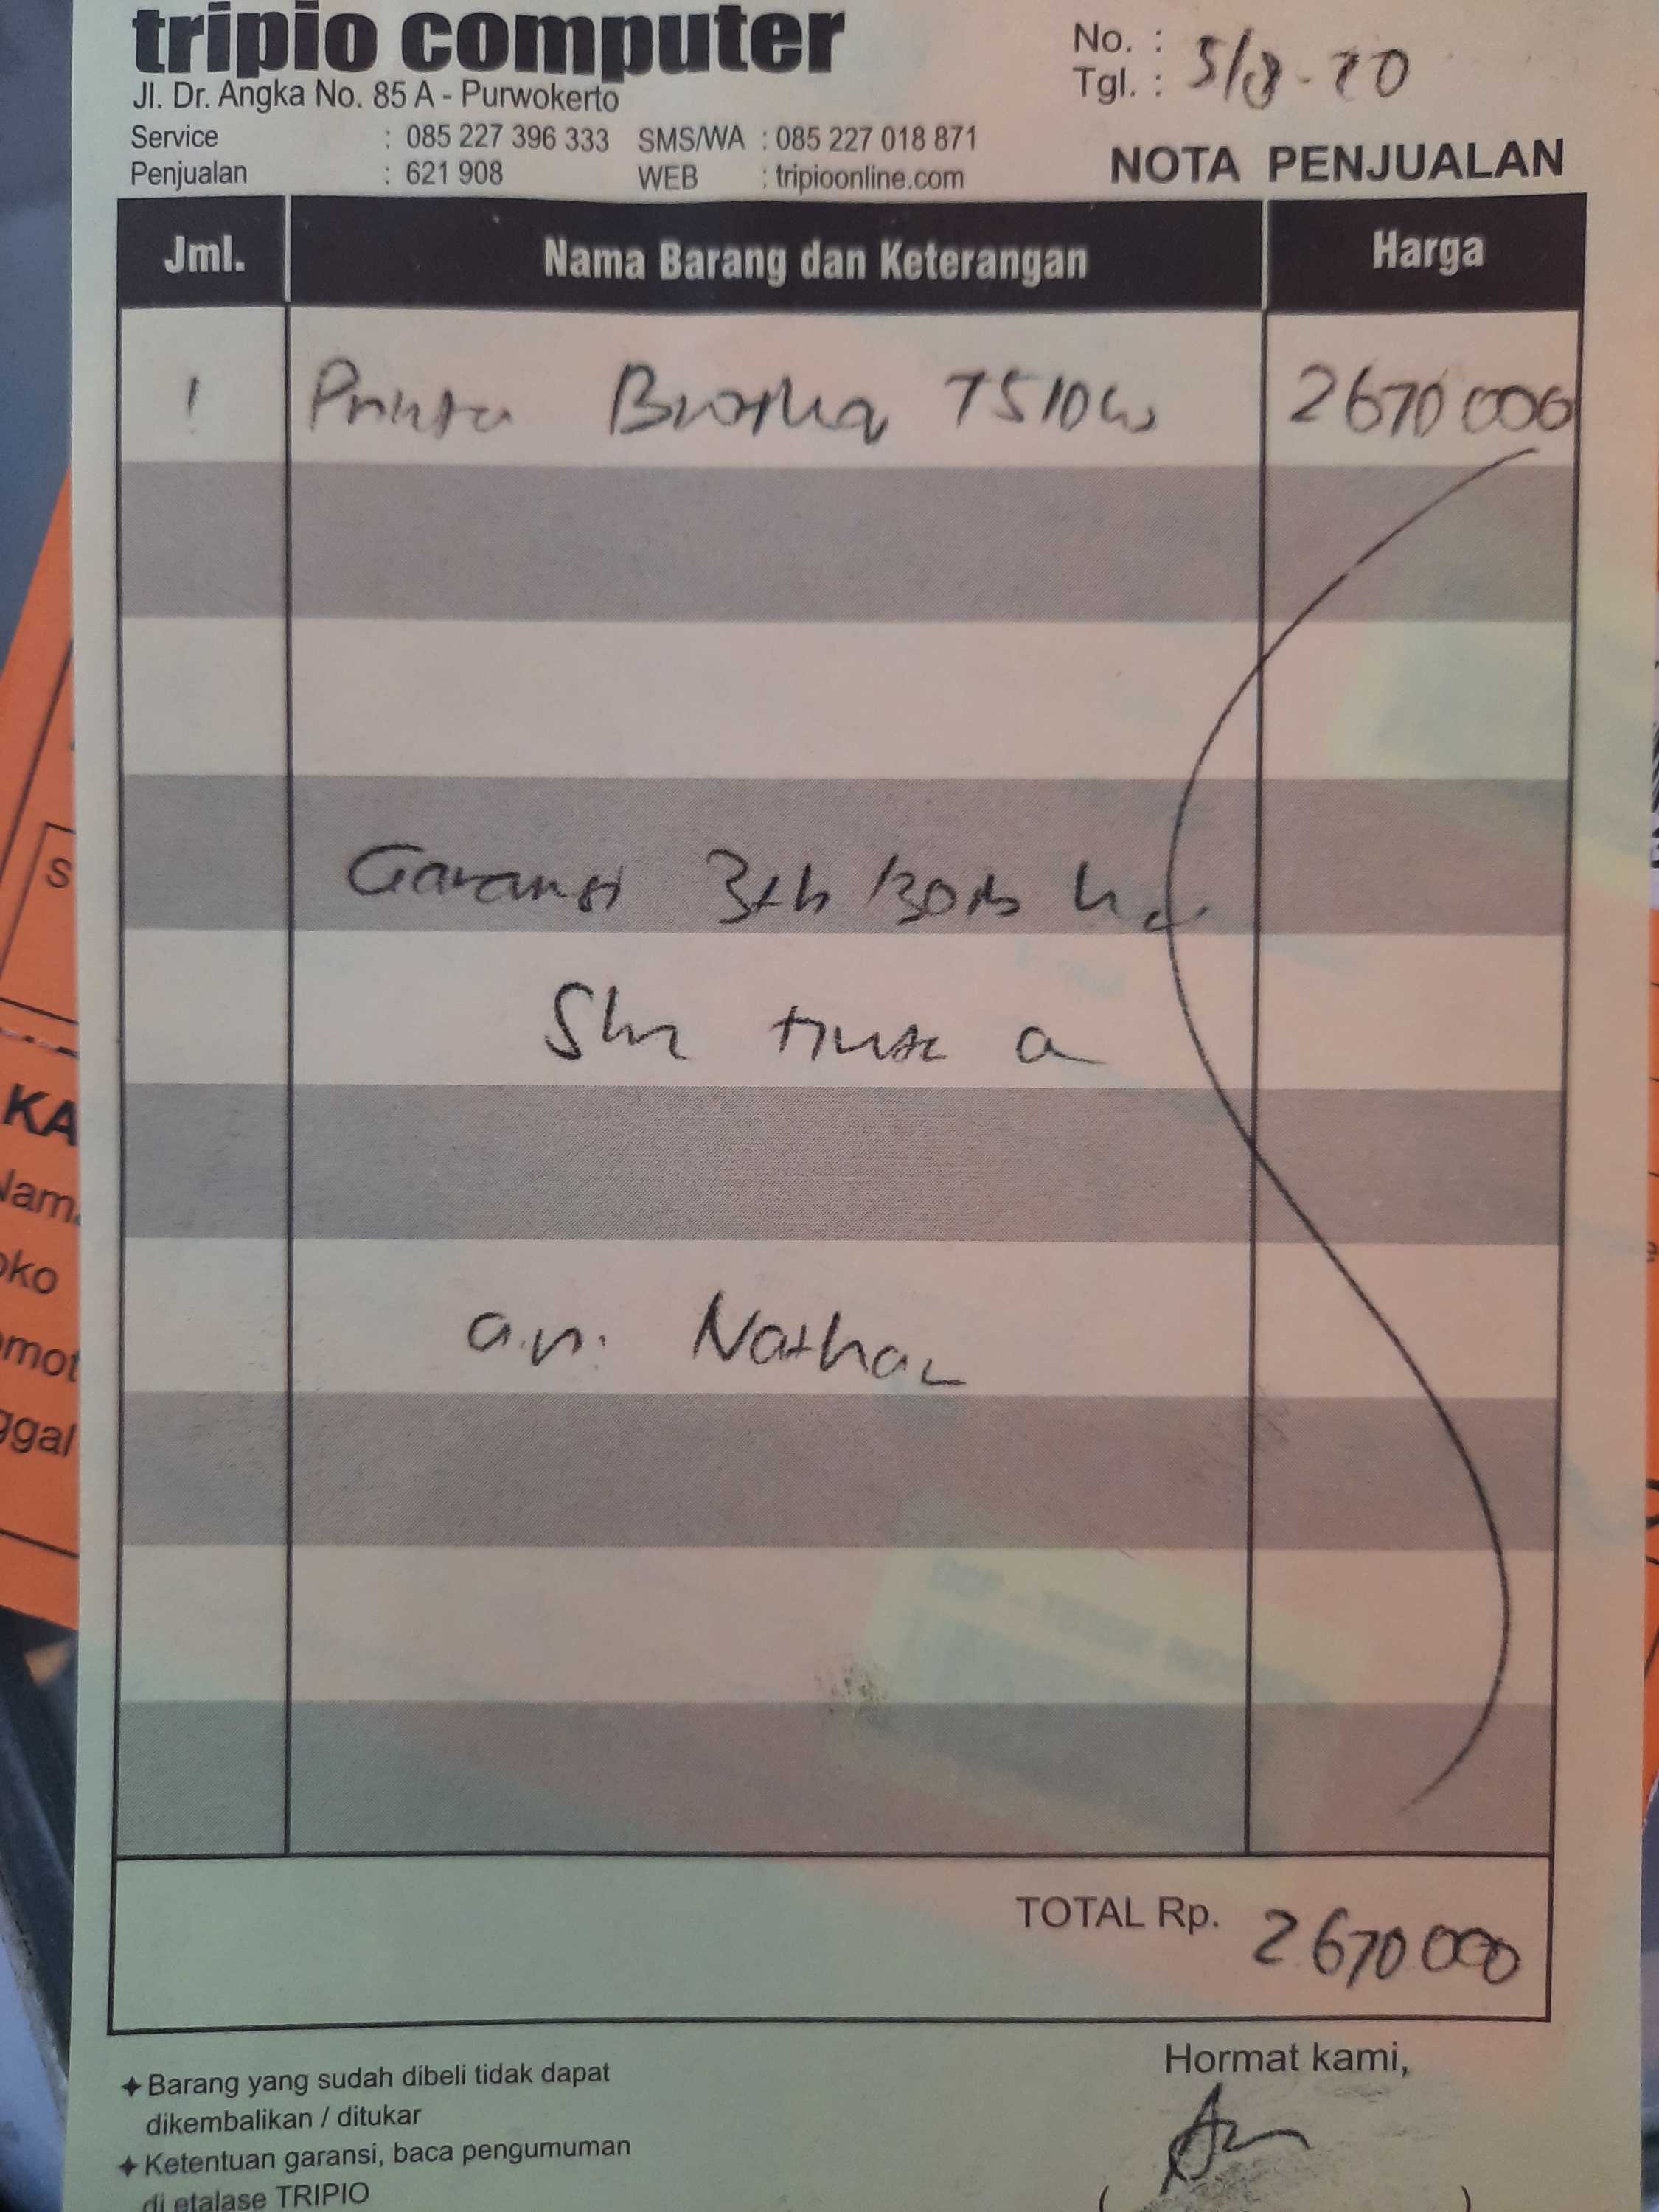 tripio computer
Jl. Dr. Angka No. 85 A - Purwokerto
Service : 085 227 396 333 SMS/WA : 085 227 018 871
Penjualan : 621 908 WEB : tripioonline.com
No. :
Tgl. : 5/8-20
NOTA PENJUALAN
Jml. Nama Barang dan Keterangan Harga
1 Printer Brother T510w 2670 000
Garansi 3th /30rb
tinta
a.n. Nathan
TOTAL Rp. 2670 000
Hormat kami,
Barang yang sudah dibeli tidak dapat
dikembalikan / ditukar
Ketentuan garansi, baca pengumuman
di etalase TRIPIO
S
KA